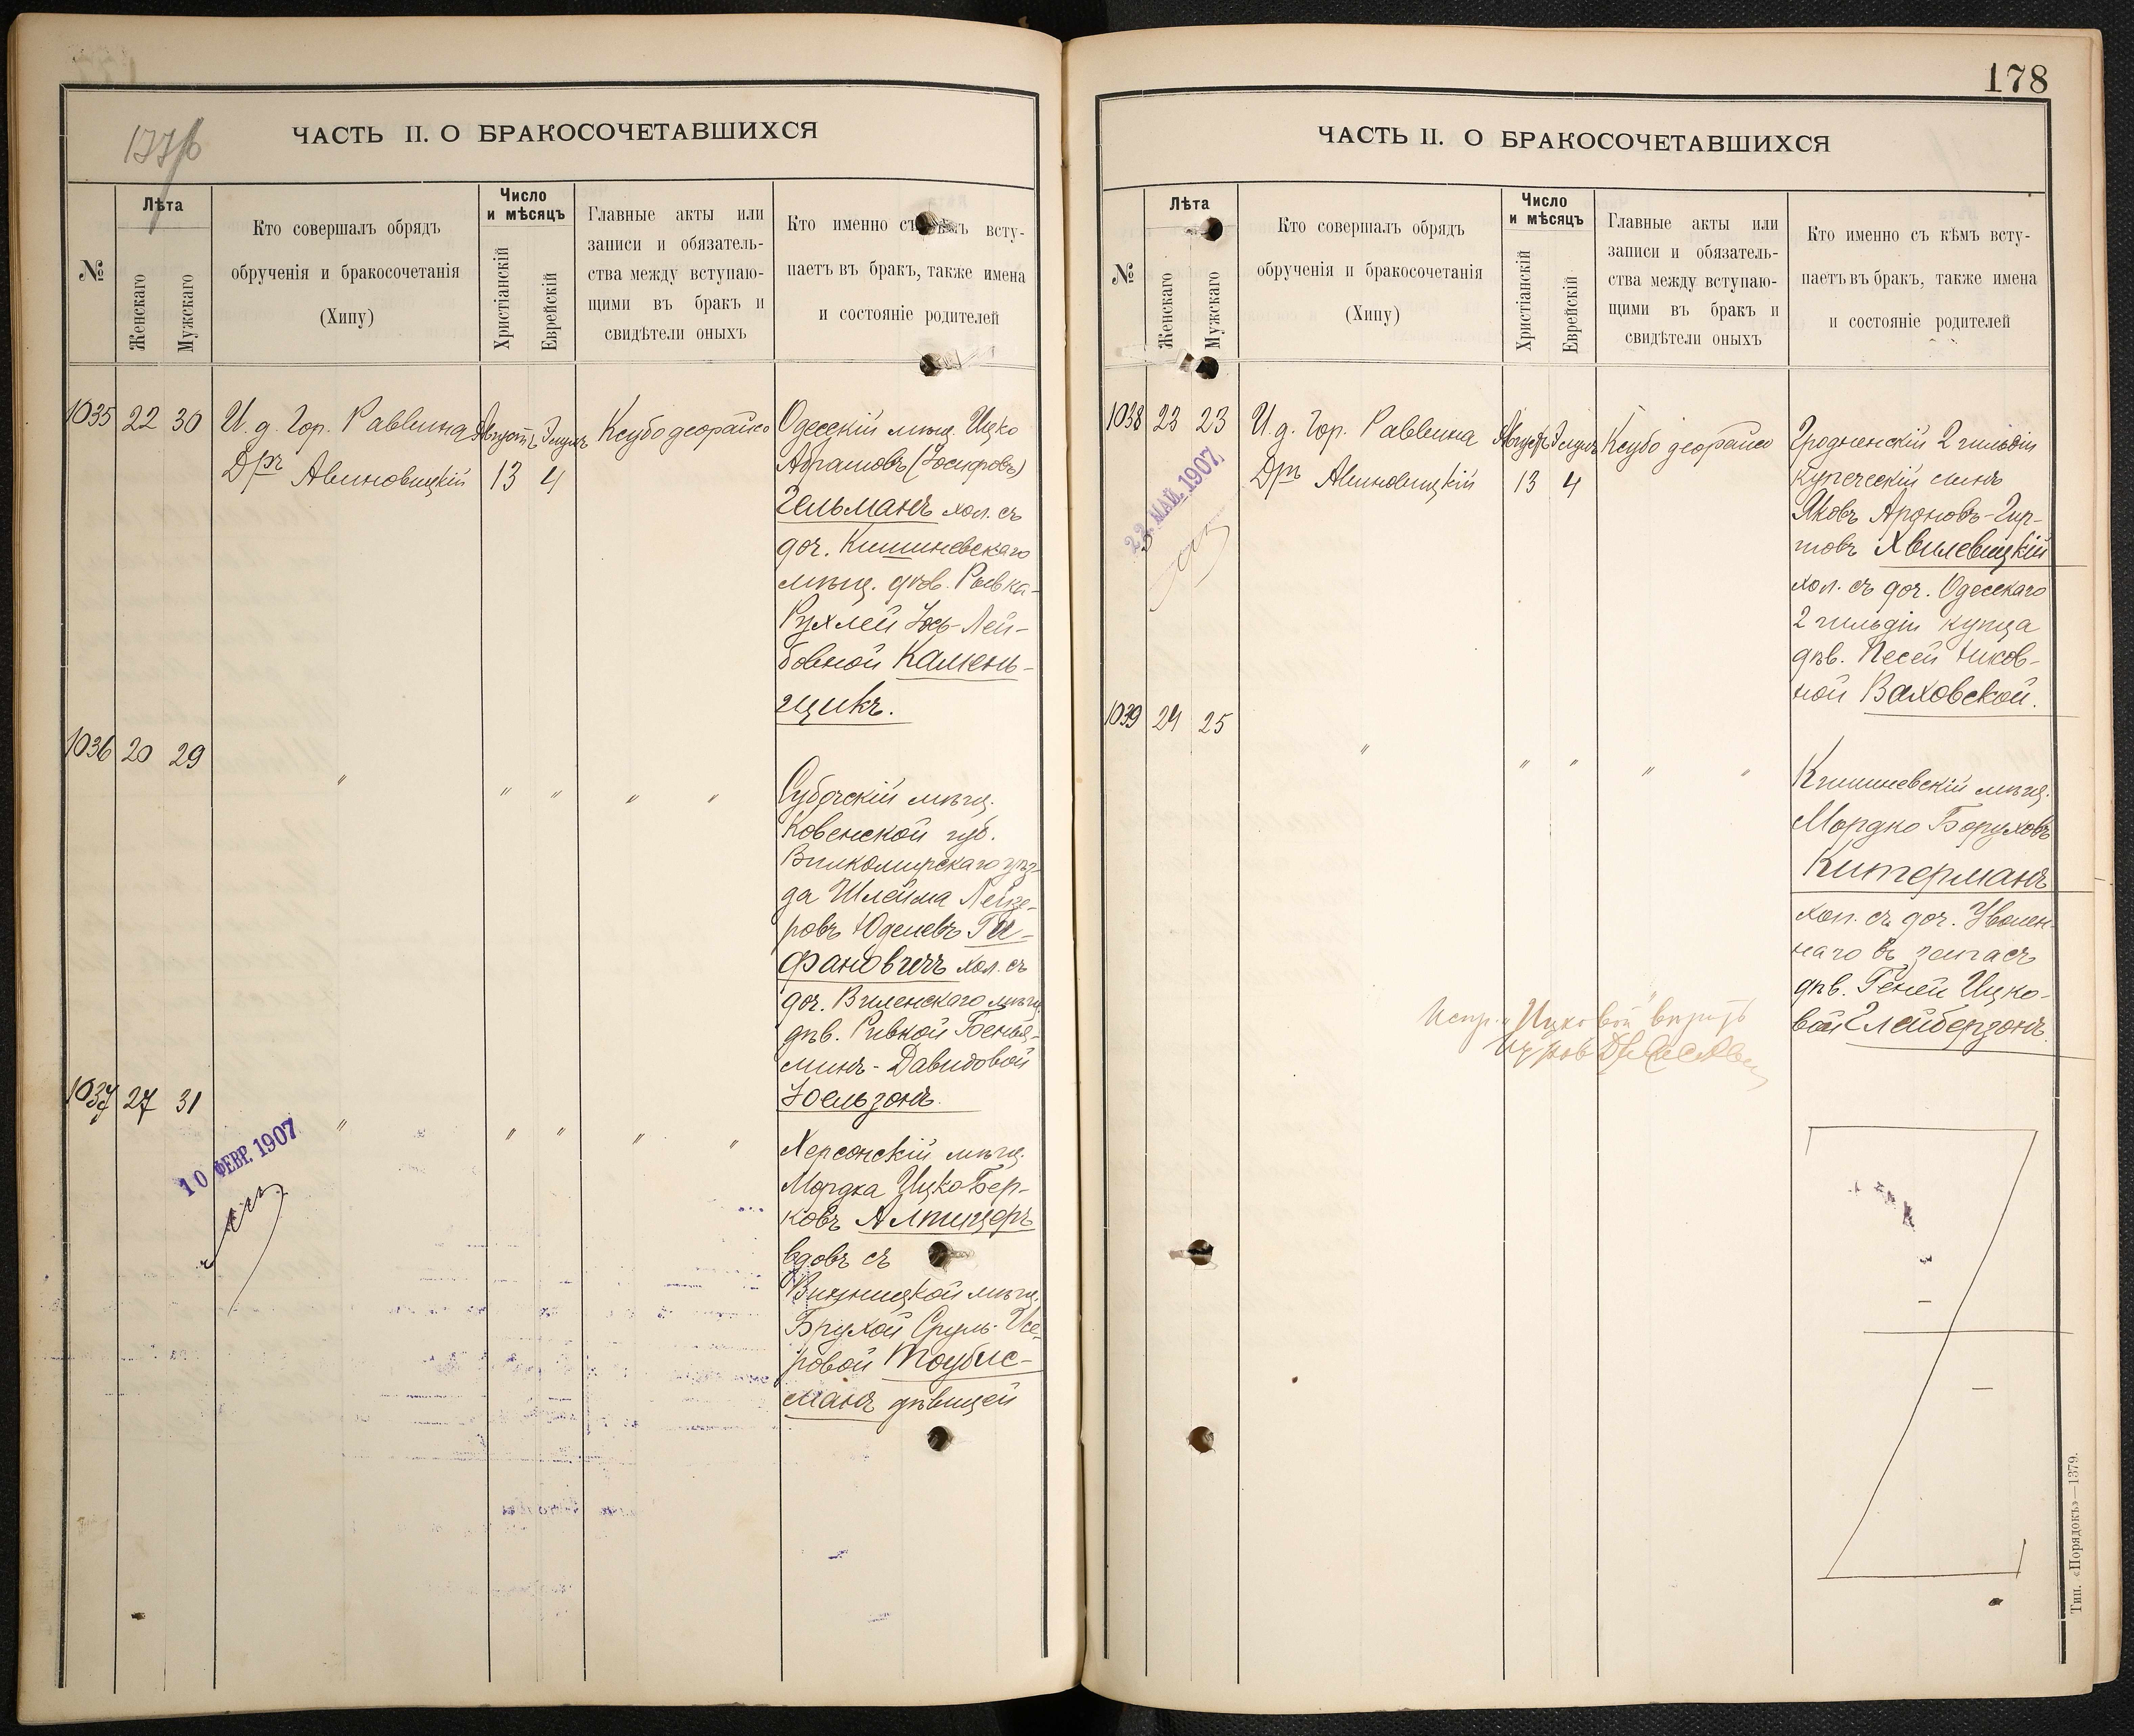 177б
ЧАСТЬ II. О БРАКОСОЧЕТАВШИХСЯ
№
Лѣта
Женскаго
Мужскаго
Кто совершалъ обрядъ
обрученія и бракосочетанія
(Хипу)
Число
и мѣсяцъ
Христіанскій
Еврейскій
Главные акты или
записи и обязатель-
ства между вступаю-
щими въ бракъ и
свидѣтели оныхъ
Кто именно съ кѣмъ всту-
паетъ въ бракъ, также имена
и состояніе родителей
1035 22 30 И. д. Гор. Раввина Августъ Элулъ Ксубо деорайсо
Дръ Авиновицкій 13 4
Одесскій мѣщ. Ицко
Абрамовъ (Іосифовъ)
Гельманъ хол. съ
доч. Кишиневскаго
мѣщ. дѣв. Ривка-
Рухлей Іось-Лей-
бовной Камень-
щикъ.
1036 20 29 " " " " "
Субочскій мѣщ.
Ковенской губ.
Вилкомирскаго уѣз-
да Шлейма Лейзе-
ровъ Юделевъ Ги-
фановичъ хол. съ
доч. Виленскаго мѣщ.
дѣв. Ривкой Бенья-
минъ-Давидовой
Іоельзонъ.
1037 27 31 " " " " "
10 ФЕВР. 1907
Херсонскій мѣщ.
Мордка Ицко Бер-
ковъ Алтицеръ
вдовъ съ
Винницкой мѣщ.
Брухой Сруль-Исе-
ровой Тоубис-
манъ дѣвицей
178
ЧАСТЬ II. О БРАКОСОЧЕТАВШИХСЯ
№
Лѣта
Женскаго
Мужскаго
Кто совершалъ обрядъ
обрученія и бракосочетанія
(Хипу)
Число
и мѣсяцъ
Христіанскій
Еврейскій
Главные акты или
записи и обязатель-
ства между вступаю-
щими въ бракъ и
свидѣтели оныхъ
Кто именно съ кѣмъ всту-
паетъ въ бракъ, также имена
и состояніе родителей
1038 23 23 И. д. Гор. Раввина Августъ Элулъ Ксубо деорайсо
Дръ Авиновицкій 13 4
22 МАЙ. 1907
Гродненскій 2 гильдіи
купеческій сынъ
Яковъ Ароновъ-Гир-
шовъ Хвилевицкій
хол. съ доч. Одесскаго
2 гильдіи купца
дѣв. Песей
ной Ваховской.
1039 24 25 " " " " "
Кишиневскій мѣщ.
Мордко Боруховъ
Китерманъ
хол. съ доч. Уволен-
наго въ запасъ
дѣв. Геней Ицко-
вой Глейберзонъ.
Испр. "Ицковой" вѣрить
Тип. «Порядокъ»—1379.